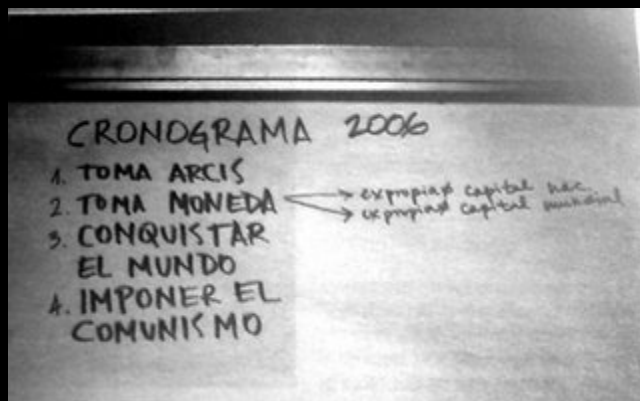 CRONOGRAMA 2006
1. TOMA ARCIS
2. TOMA MONEDA
expropiar capital nac.
expropiar capital mundial
3. CONQUISTAR
EL MUNDO
4. IMPONER EL
COMUNISMO